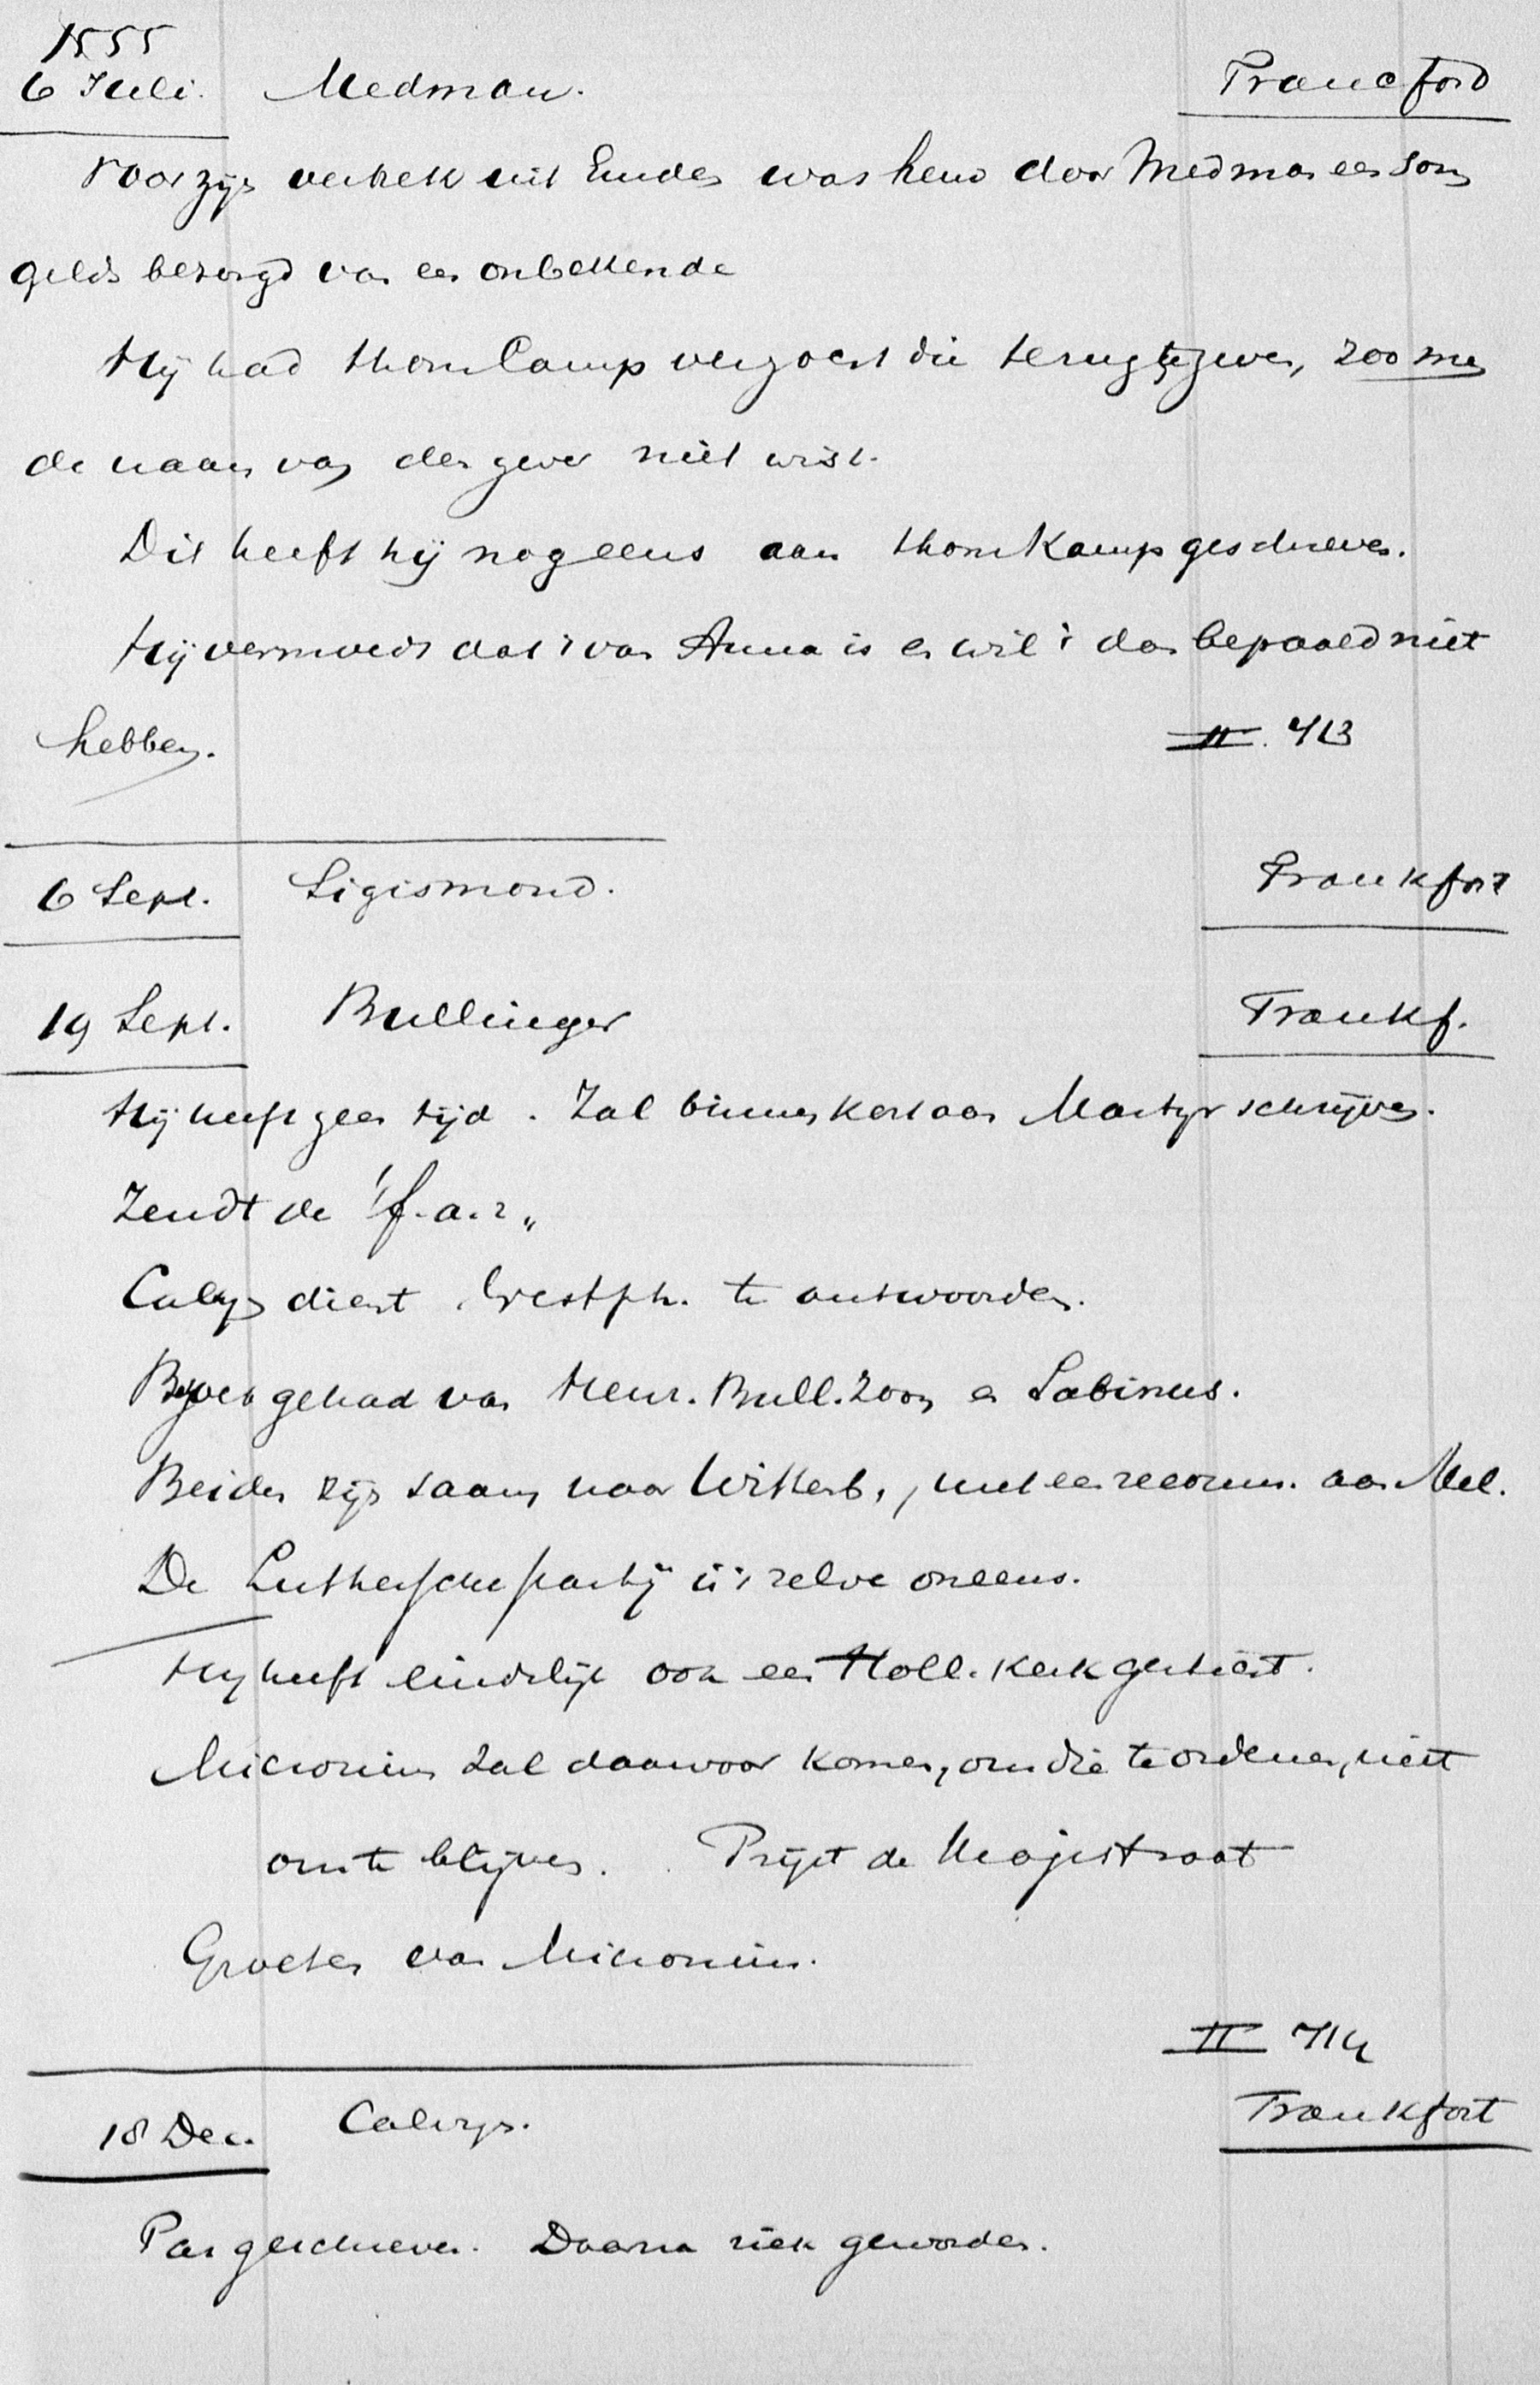 1555
6 Juli. Medman. Francford
Voor zijn vertrek uit Emden was hem door Medman een som
gelds bezorgd van een onbekende
Hij had thom Camp verzocht die terug te geven, zoo men
de naam van den gever niet wist.
Dit heeft hij nog eens aan thom Kamp geschreven.
Hij vermoedt dat 't van Anna is en wil 't dan bepaald niet
hebben. II. 713
6 Sept. Sigismond. Frankfort
19 Sept. Bullinger Frankf.
Hij heeft geen tijd. Zal binnenkort aan Martyr schrijven.
Zendt de "f.a.r„
Calvijn dient Westph. te antwoorden.
Bezoek gehad van Henr. Bull. zoon en Sabinus.
Beiden zijn saam naar Wittenb., met een recomm. aan Mel.
De Luthersche partij is 't zelve oneens.
Hij heeft eindelijk ook een Holl. kerk gesticht.
Micronius zal daarvoor komen, om die te ordenen, niet
om te blijven. Prijst de Magistraat
Groeten van Micronius.
II 714
18 Dec. Calvijn. Frankfort
Pas geschreven. Daarna ziek geworden.